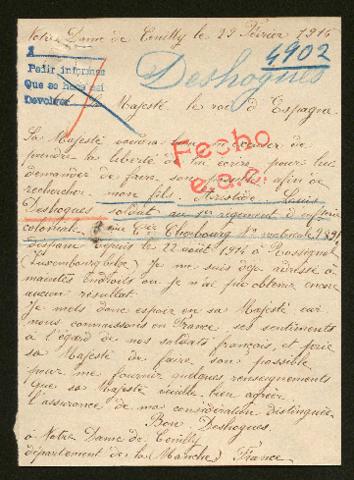 Notre Dame de Cenilly le 29 Février 1916
1
Pedir informes
Que se hace así
Devolver
4902
Deshogues
Majesté le roi d'Espagne
Sa Majesté voudra bien m'excuser de
prendre la liberté de lui écrire pour lui
demander de faire son possible afin de
rechercher mon fils Aristide Louis
Deshogues soldat au 1er régiment d'infie
coloniale Cie Cherbourg No matricule
disparu depuis le 22 août 1914 à Rossignol
(Luxembourg belge) Je me suis déjà adressé à
maintes endroits ou je n'ai pu obtenir encore
aucun résultat.
Je mets donc espoir en sa Majesté car
nous connaissons en France ses sentiments
à l'égard de nos soldats français, et prie
sa Majesté de faire son possible
pour me fournir quelques renseignements
Que sa Majesté veuille bien agréer
l'assurance de ma considération distinguée
Bon Deshogues.
à Notre Dame de Cenilly
département de la (Manche) France
Fecho
e.a.c.